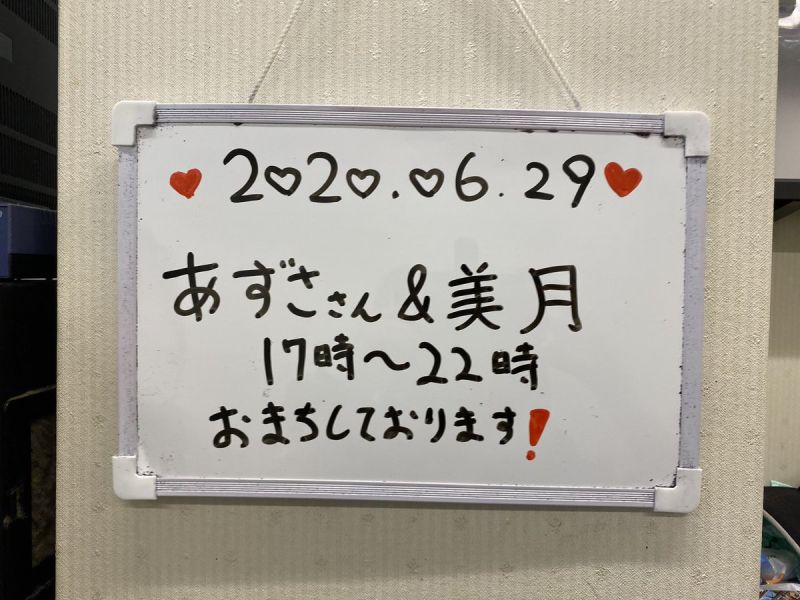 ♥2♡2♡.♡6.29♥
あずささん&美月
17時〜22時
おまちしております!